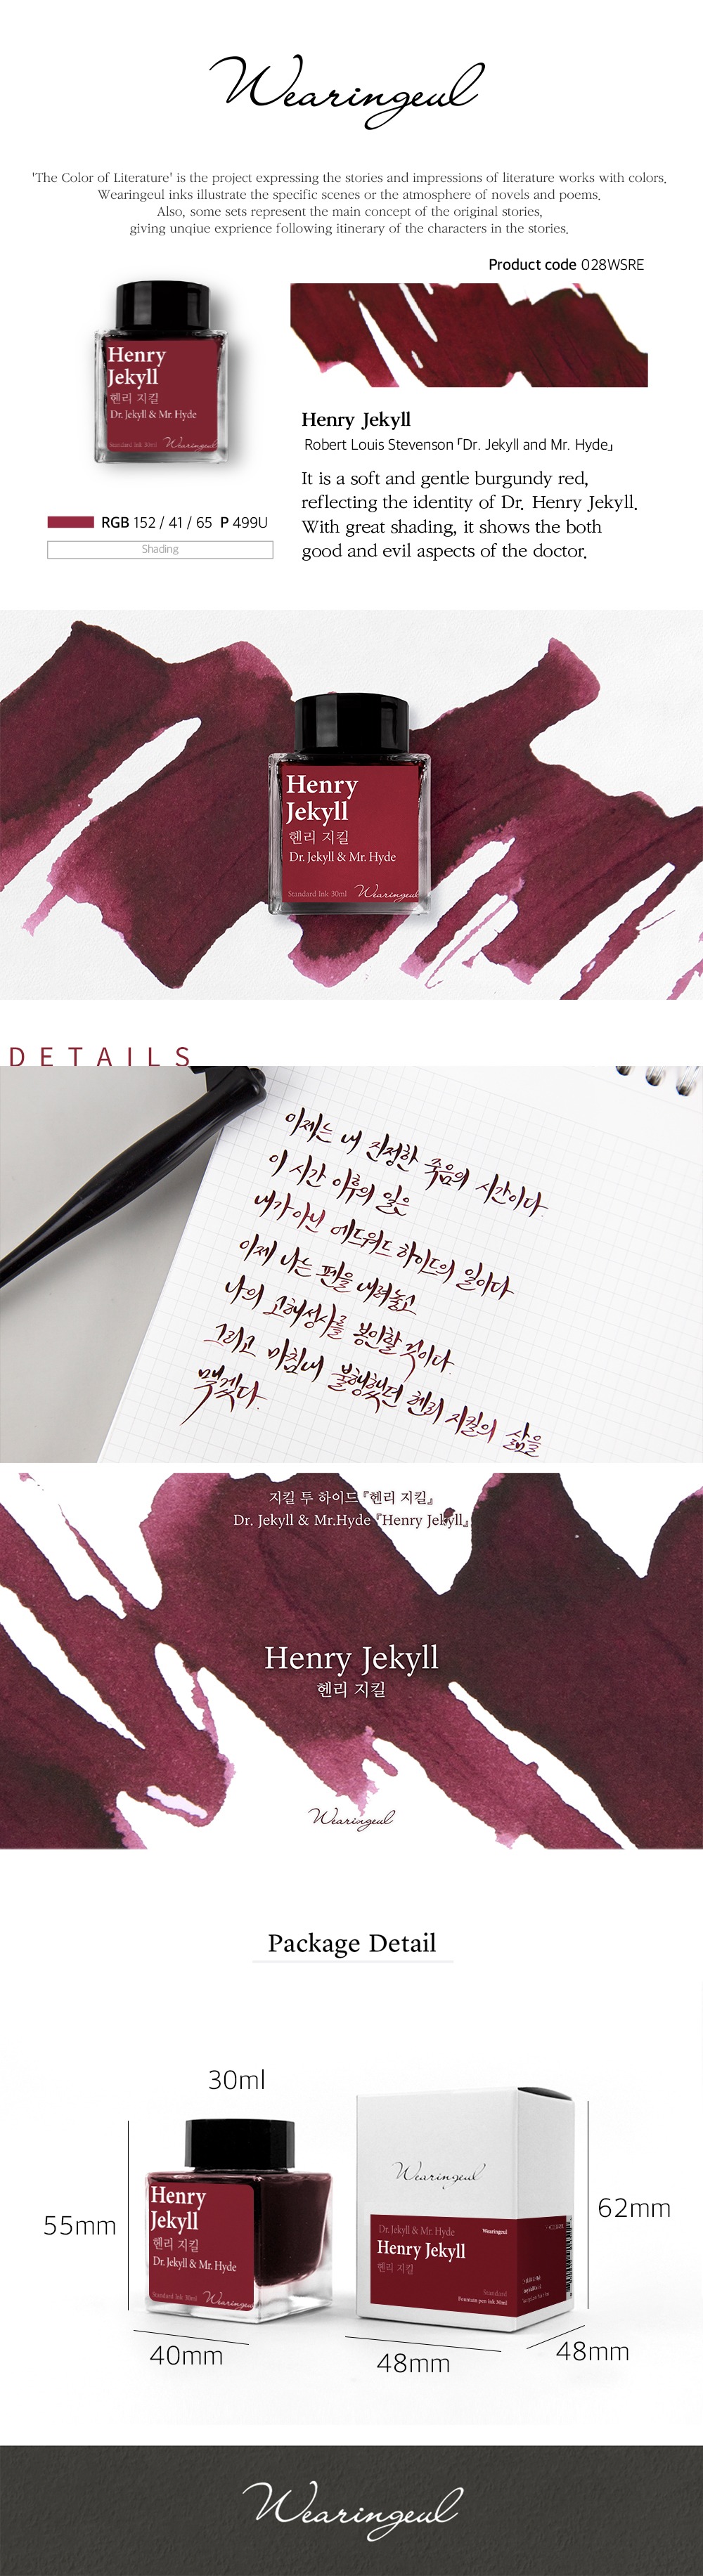 Wearingeul
'The Color of Literature' is the project expressing the stories and impressions of literature works with colors.
Wearingeul inks illustrate the specific scenes or the atmosphere of novels and poems.
Also, some sets represent the main concept of the original stories,
giving unqiue exprience following itinerary of the characters in the stories.
Product code 028WSRE
Henry
Jekyll
헨리 지킬
Dr. Jekyll & Mr. Hyde
Standard Ink 30ml Wearingeul
RGB 152 / 41 / 65 P 499U
Shading
Henry Jekyll
Robert Louis Stevenson「Dr. Jekyll and Mr. Hyde」
It is a soft and gentle burgundy red,
reflecting the identity of Dr. Henry Jekyll.
With great shading, it shows the both
good and evil aspects of the doctor.
Henry
Jekyll
헨리 지킬
Dr. Jekyll & Mr. Hyde
Standard Ink 30ml Wearingeul
DETAILS
이제는 내 진정한 죽음의 시간이다.
이 시간 이후의 일은
내가 아닌 에드워드 하이드의 일이다
이제 나는 펜을 내려놓고
나의 고해성사를 봉인할 것이다.
그리고 마침내 불행했던 헨리 지킬의 삶을
맺겠다.
지킬 투 하이드『헨리 지킬』
Dr. Jekyll & Mr.Hyde『Henry Jekyll』
Henry Jekyll
헨리 지킬
Wearingeul
Package Detail
30ml
55mm
40mm
Henry
Jekyll
헨리 지킬
Dr. Jekyll & Mr. Hyde
Standard Ink 30ml Wearingeul
Wearingeul
Dr. Jekyll & Mr. Hyde Wearingeul
Henry Jekyll
헨리 지킬
Standard
Fountain pen ink 30ml
62mm
48mm
48mm
Wearingeul